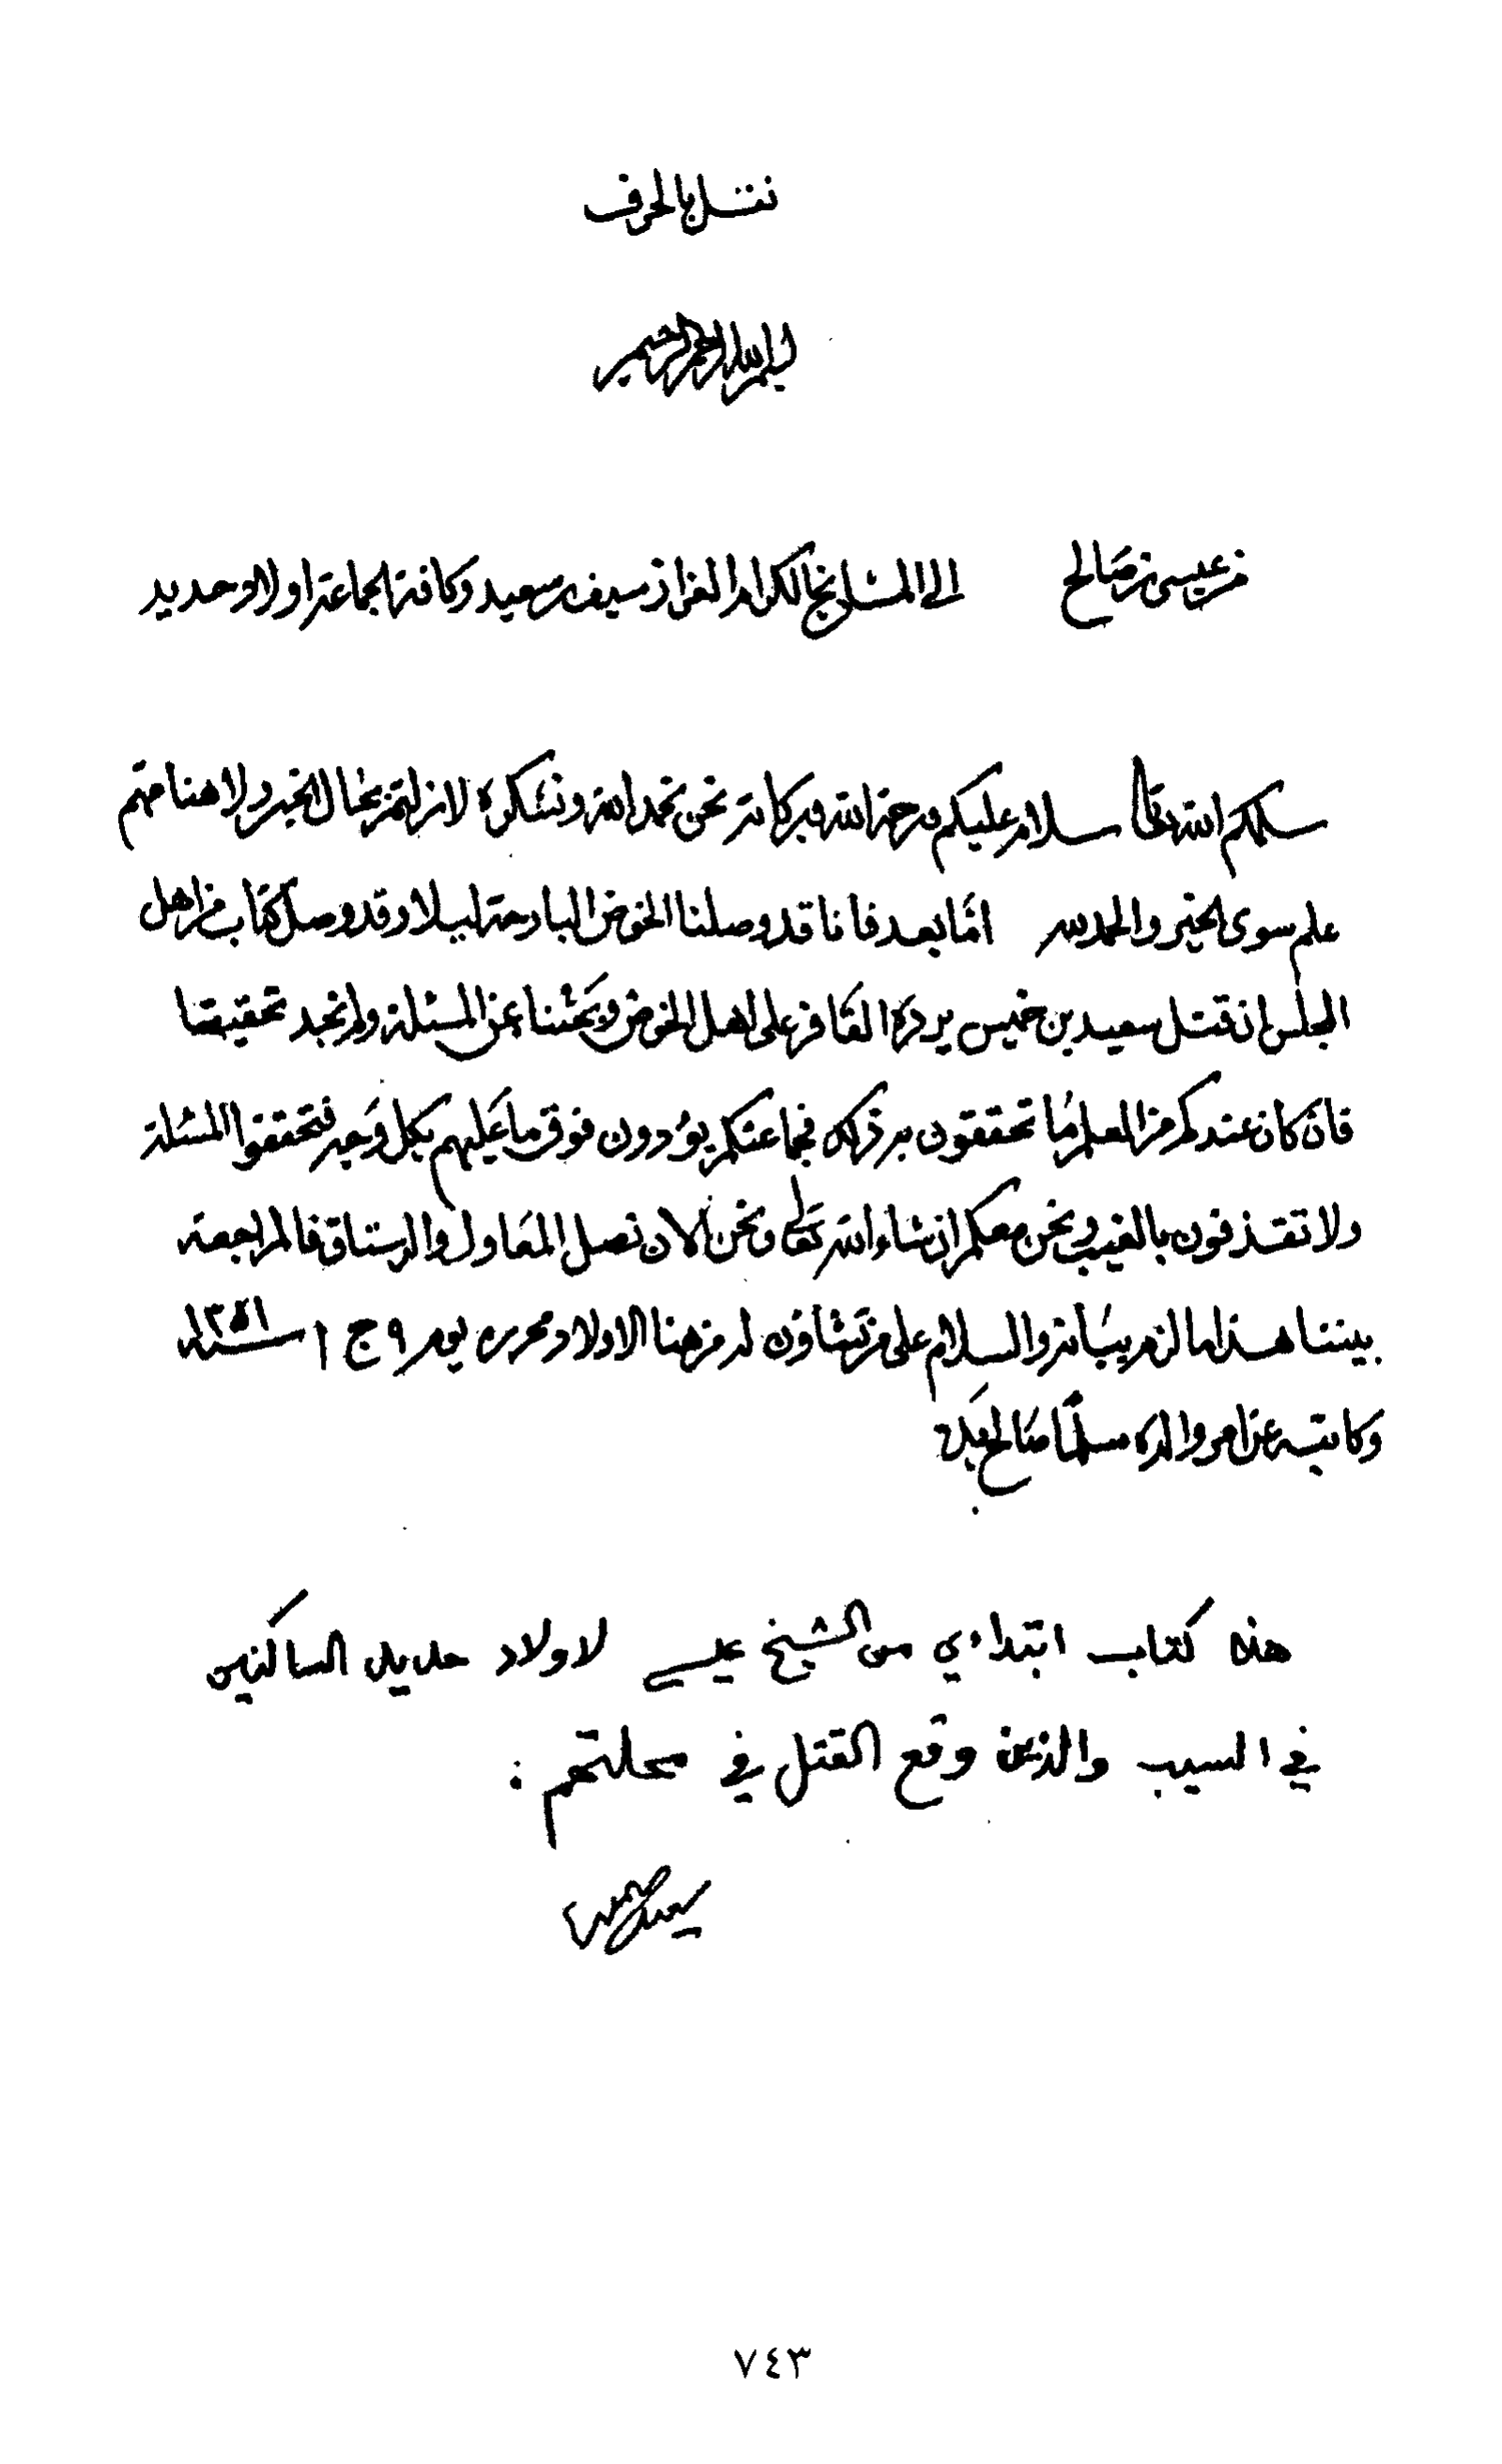 نقل بالحرف
بسم الله الرحمن الرحيم
من عيسى بن صالح الى المشايخ الكرام العزاز سيف بن سعيد وكافة الجماعة اولاد حديد
سلمكم الله تعالى سلام عليكم ورحمة الله وبركاته نحن نحمد الله ونشكره لا زلتم بحال الخير ولا هنا منهم
علم سوى الخير والحمد لله امّا بعد فانا قد وصلنا الخوض البارحة ليلا وقد وصل كتاب من اهل
المجلس ان قتل سعيد بن خميس يردّه القافر على اهل الخوض وبحثنا عن المسئلة ولم نجد تحقيقا
فان كان عندكم من العلم ما تحققون به ذلك فجماعتكم يؤدون فوق ما عليهم بكل وجه فتحققوا المسئلة
ولا تقذفون بالغيب ونحن معكم ان شاء الله تعالى ونحن الآن نصل المعاول والرستاق فالمراجعة
بيننا هذا ما لزم بيانه والسلام على من تشاؤن له من هنا الاولاد محرره يوم ٩ ج ١ سنة ١٣٥١
وكاتبه عن امر والده مسلّما صالح بيده
هذه كتاب ابتداءي من الشيخ عيسى لاولاد حديد الساكنين
في السيب والذين وقع القتل في محلتهم :
٧٤٣